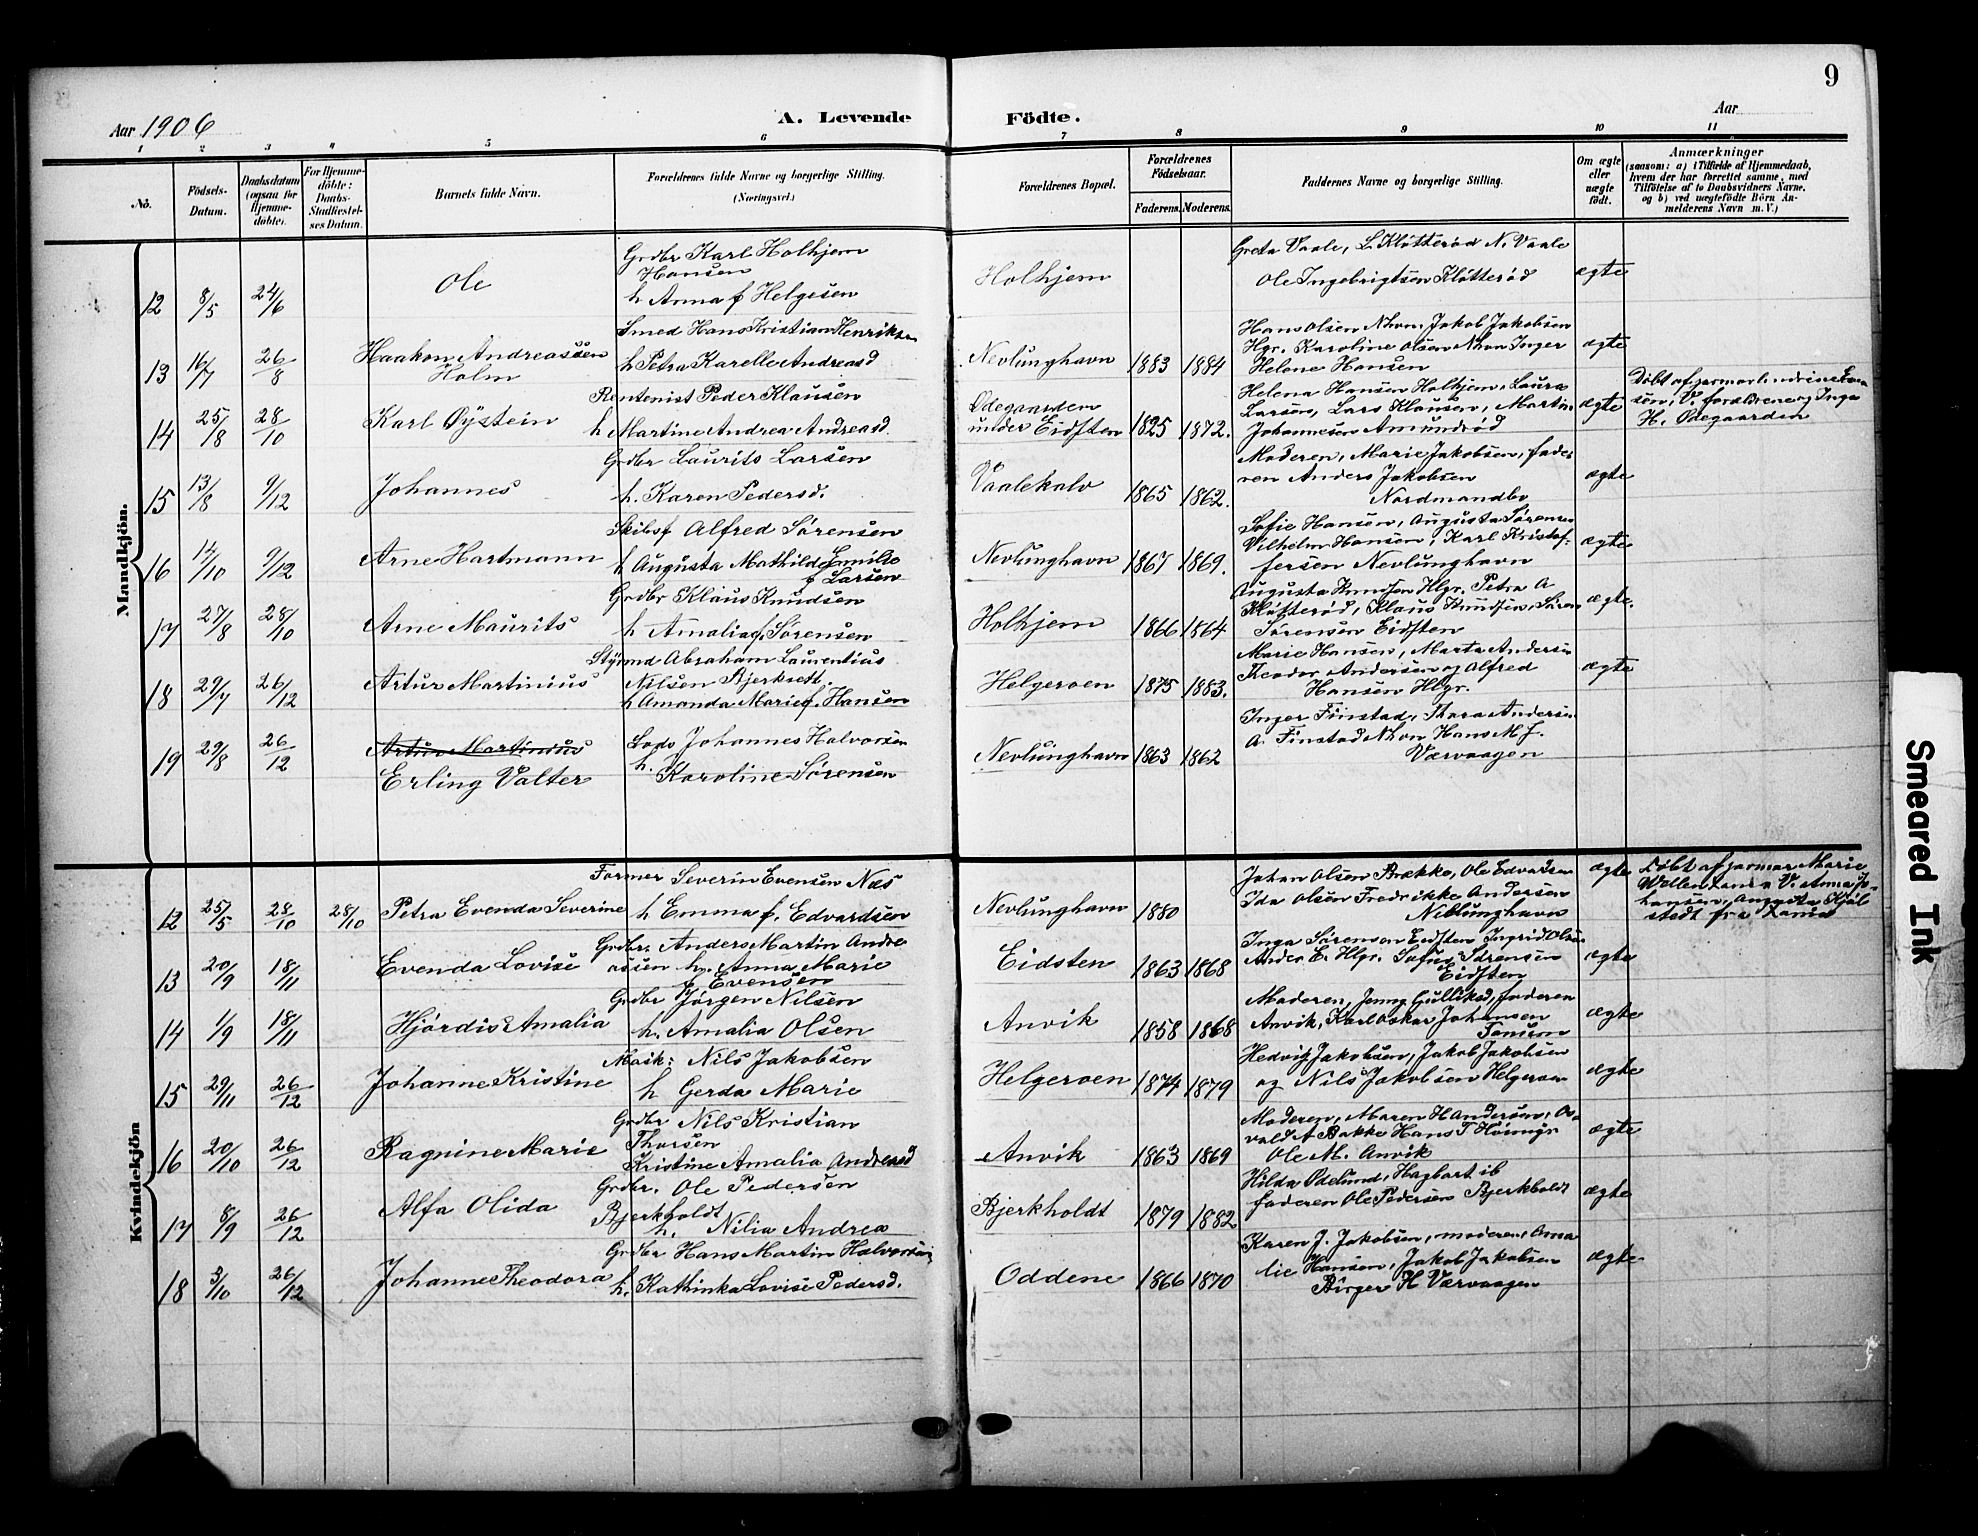 9
Aar 1906
A. Levende Födte.
Aar
1 2 3 4 5 6 7 8 9 10 11
No.
Födsels-Datum.
Daabsdatum (ogsaa for Hjemme-döbte).
For Hjemme-döbte: Daabs-Stadfæstel-ses Datum.
Barnets fulde Navn.
Forældrenes fulde Navne og borgerlige Stilling. (Næringsvei.)
Forældrenes Bopæl.
Forældrenes Födselsaar.
Faderens. Moderens.
Faddernes Navne og borgerlige Stilling.
Om ægte eller uægte födt.
Anmærkninger
(saasom: a) i Tilfælde af Hjemmedaab, hvem der har forrettet samme, med Tilföielse af to Daabsvidners Navne, og b) ved uægtefödte Börn Anmelderens Navn m. V.)
Mandkjön.
12 8/5 24/6 Ole
Grdbr Karl Holhjem
Hansen
h Anna f Helgesen
Holhjem
Greta Vaale, L. Kløtterød N. Vaale
Ole Ingebrigtsen Kløtterød
ægte
13 16/7 26/8 Haakon Andreassen
Holm
Smed Hans Kristian Henriksen
h Petra Karelle Andreasd
Nevlunghavn 1883 1884
Hans Olsen Nhvn, Jakob Jakobsen
Hgr. Karoline Olsen Nhvn Inger
Helene Hansen
ægte
14 25/8 28/10 Karl Øystein
Rentenist Peder Klausen
h Martine Andrea Andreasd.
Ødegaarden
under Eidsten 1825 1872.
Helena Hansen Holhjem, Laura
Larsen, Lars Klausen, Martin
Johannesen Amundrød
ægte
Døbt af jormor
sen, V. forældrene og Inga
H. Ødegaarden
15 13/8 9/12 Johannes
Grdbr Laurits Larsen
h. Karen Pedersd.
Vaalekalv 1865 1862.
Moderen, Marie Jakobsen, fade-
ren Anders Jakobsen
Nordmandbo
ægte
16 14/10 9/12 Arne Hartmann
Skibsf Alfred Sørensen
h Augusta Mathilde Emilie
f Larsen
Nevlunghavn 1867 1869.
Sofie Hansen, Augusta Sørensen
Vilhelm Hansen, Karl Kristof-
fersen Nevlunghavn
ægte
17 27/8 28/10 Arne Maurits
Grdbr Klaus Knudsen
h Amalia f. Sørensen
Holhjem 1866 1864
Augusta Knudsen Hlgr. Petra A
Kløtterød, Klaus Knudsen, Søren
Sørensen Eidsten
ægte.
18 29/7 26/12 Artur Martinius
Styrmd Abraham Laurentius
Nilsen Bjerksedt.
h Amanda Marie f. Hansen
Helgeroen 1875 1883.
Marie Hansen, Marta Andersen
Teodor Andersen og Alfred
Hansen Hlgr.
ægte
19 29/8 26/12 Artur Martinius
Erling Valter
Lods Johannes Halvorsen
h. Karoline Sørensen
Nevlunghavn 1863 1862
Inger Finstad, Thora Andersen
A. Finstad Nhvn Hans M. J.
Værvaagen
Kvindekjön
12 25/5 28/10 28/10 Petra Evenda Severine
Former Severin Evensen Næs
h Emma f. Edvardsen
Nevlunghavn 1880
Johan Olsen Brække, Ole Edvardsen
Ida Olsen Fredrikke Andersen
Nevlunghavn
ægte
Døbt af jormor Marie
V. Anna Jo-
hansen, Augusta
stedt fra
13 20/9 18/11 Evenda Lovise
Grdbr. Anders Martin Andre
assen h. Anna Marie
f Evensen
Eidsten 1863 1868
Inga Sørensen Eidsten Ingrid Olsen
Ander. E. Hlgr. Sofus Sørensen
Eidsten
ægte
14 1/9 18/11 Hjørdis Amalia
Grdbr Jørgen Nilsen
h. Amalia Olsen
Anvik 1858 1868
Moderen, Jenny Gulliksd, faderen
Anvik, Karl Oskar Johansen
Tanum
ægte
15 29/11 26/12 Johanne Kristine
Mask: Nils Jakobsen
h Gerda Marie
Helgeroen 1874 1879
Hedvig Jakobsen, Jakob Jakobsen
og Nils Jakobsen Helgeroen
ægte
16 20/10 26/12 Ragnine Marie
Grdbr Nils Kristian
Thorsen
Kristine Amalia Andreasd
Anvik 1863 1869
Moderen, Maren H Andersen, Os-
vald A Bakke Hans T Høimyr
Ole M. Anvik
ægte
17 8/9 26/12 Alfa Olida
Grdbr. Ole Pedersen
Bjerkholdt
h. Nilia Andrea
Bjerkholdt 1879 1882
Hilda Ødelund, Hagbart ib
faderen Ole Pedersen Bjerkholdt
ægte
18 3/10 26/12 Johanne Theodora
Grdbr Hans Martin Halvorsen
h. Kathinka Lovise Pedersd.
Oddene 1866 1870
Karen J. Jakobsen, moderen, Ama
lie Hansen, Jakob Jakobsen
Birger H Værvaagen
ægte
Smeared Ink